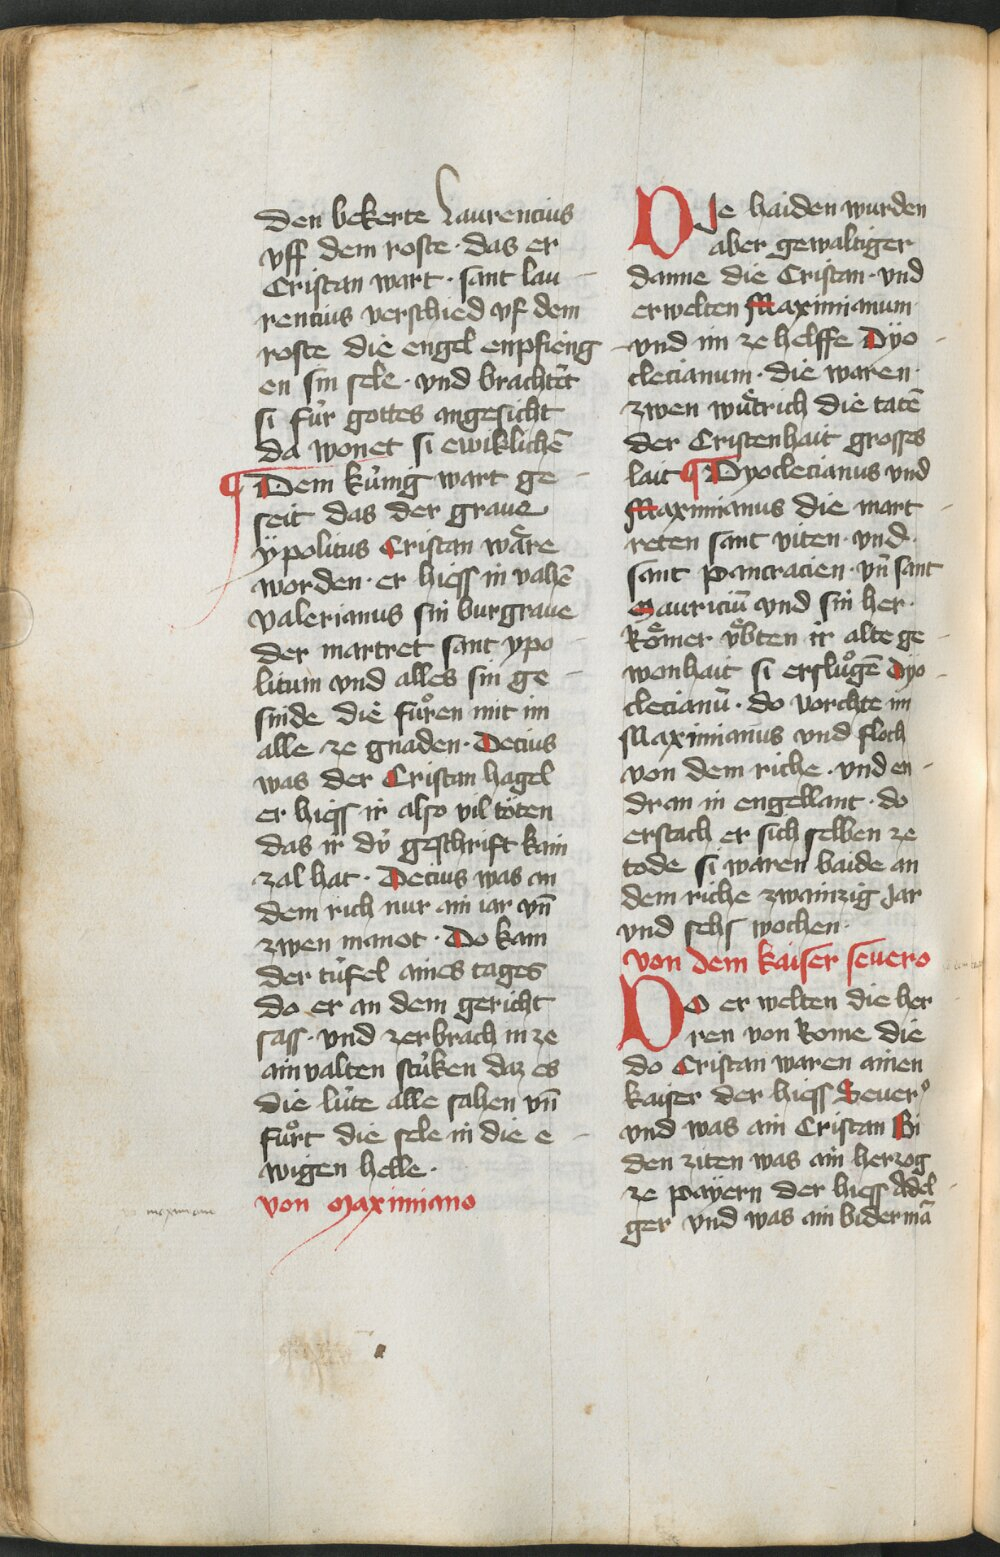 den bekerte Laurencius
vff dem roste · das er
Cristan wart · sant lau
rencius verschied vf dem
roste die engel enpfieng
en sin sele · vnd brachtēt
si fúr gottes angesicht
da wonet si ewiklichē
¶ Dem kúnig wart ge
seit das der graue
ÿpolitus Cristan wåre
worden · er hiess in vahē
valerianus sin burgraue
der martret sant ypo
litum vnd alles sin ge
sinde die fuͦren mit im
alle ze gnaden · Decius
was der Cristan hagel
er hiess ir also vil töten
das ir dú geschrift kain
zal hat · Decius was an
dem rich nur ain iar vn̄
zwen manot · Do kam
der túfel aines tages
do er an dem gericht
sass · vnd zerbrach in ze
ainvalten stúken daz es
die lúte alle sahen vn̄
fuͦrt die sele in die e
wigen helle ·
von maximiano
maximiano
DJe haiden wurden
aber gewaltiger
danne die Cristan · vnd
erwelten Maximianum
vnd im ze helffe Dÿo
clecianum · die waren
zwen wuͤtrich die tatē
der Cristenhait grosses
lait ¶ Dyoclecianus vnd
Maximianus die mart
reten sant viten · vnd
sant pancracien · vn̄ sant
Mauriciū vnd sin her ·
Roͤmer vͤbten ir alte ge
wonhait si ersluͦgē Dyo
clecianū · do vorchte im
Maximianus vnd floch
von dem riche · vnd en
dran in engellant · do
erstach er sich selben ze
tode si waren baide an
dem riche zwainzig Jar
vnd sehs wochen ·
von dem kaiser seuero
DO er welten die her
ren von Rome die
do Cristan waren ainen
kaiser der hiess Seuer⁹
vnd was ain Cristan Bi
den ziten was ain herzog
ze payern der hiess Adel
ger vnd was ain bidermā